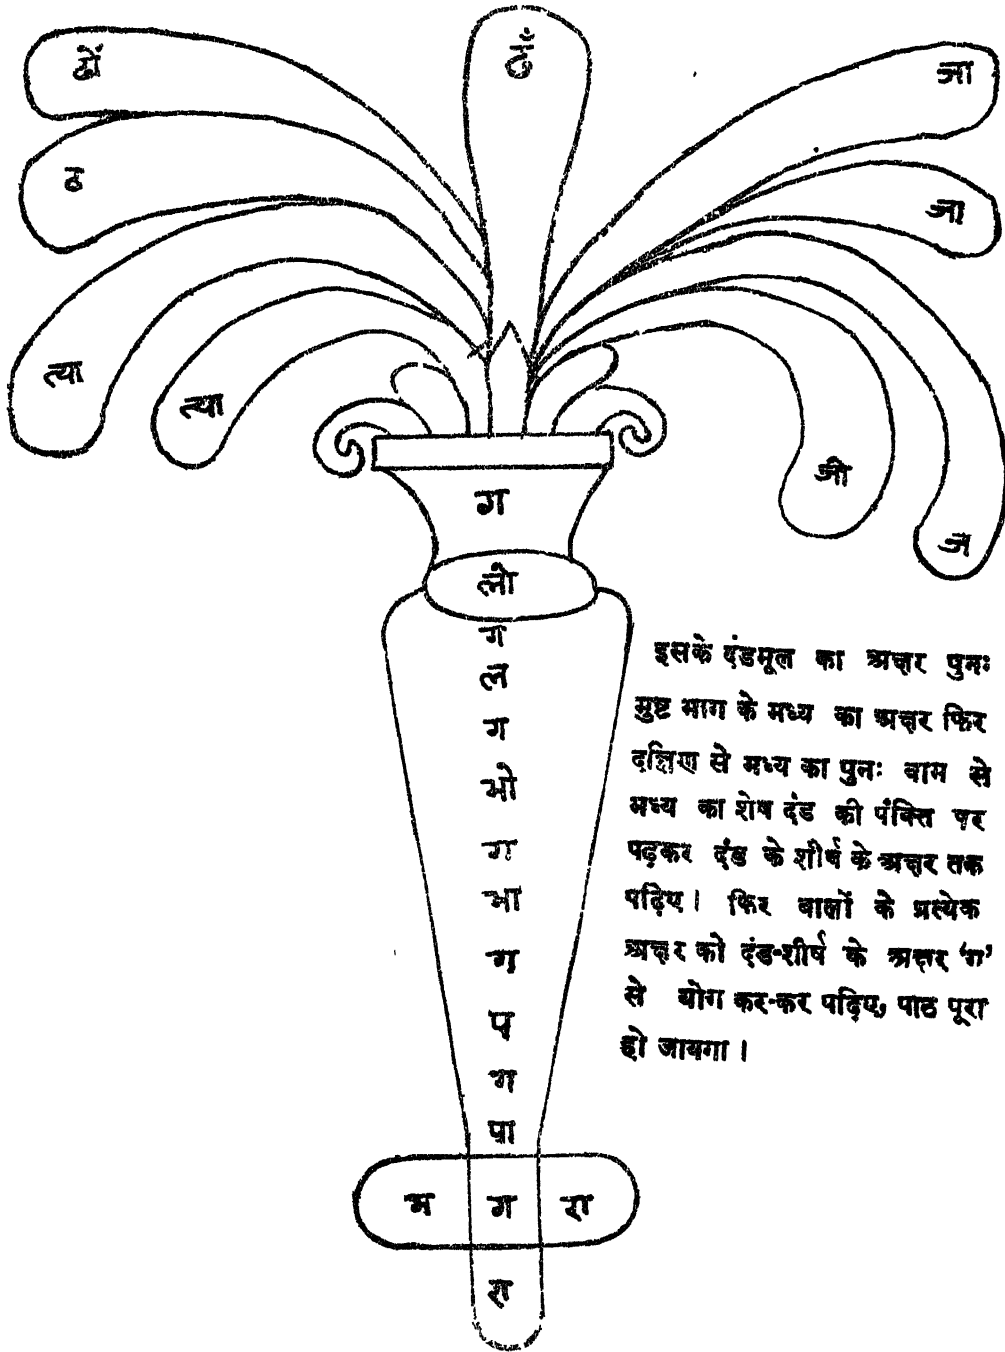 ढँ
ढों
जा
ठ
जा
त्या
त्या
जी
ज
ग
लो
ग
ल
ग
भो
ग
भा
ग
प
ग
पा
भ ग रा
रा
इसके दंडमूल का अक्षर पुनः
मुष्ट भाग के मध्य का अक्षर फिर
दक्षिण से मध्य का पुनः बाम से
मध्य का शेष दंड की पंक्ति पर
पढ़कर दंड के शीर्ष के अक्षर तक
पढ़िए। फिर बालों के प्रत्येक
अक्षर को दंड-शीर्ष के अक्षर 'ग'
से योग कर-कर पढ़िए, पाठ पूरा
हो जायगा।